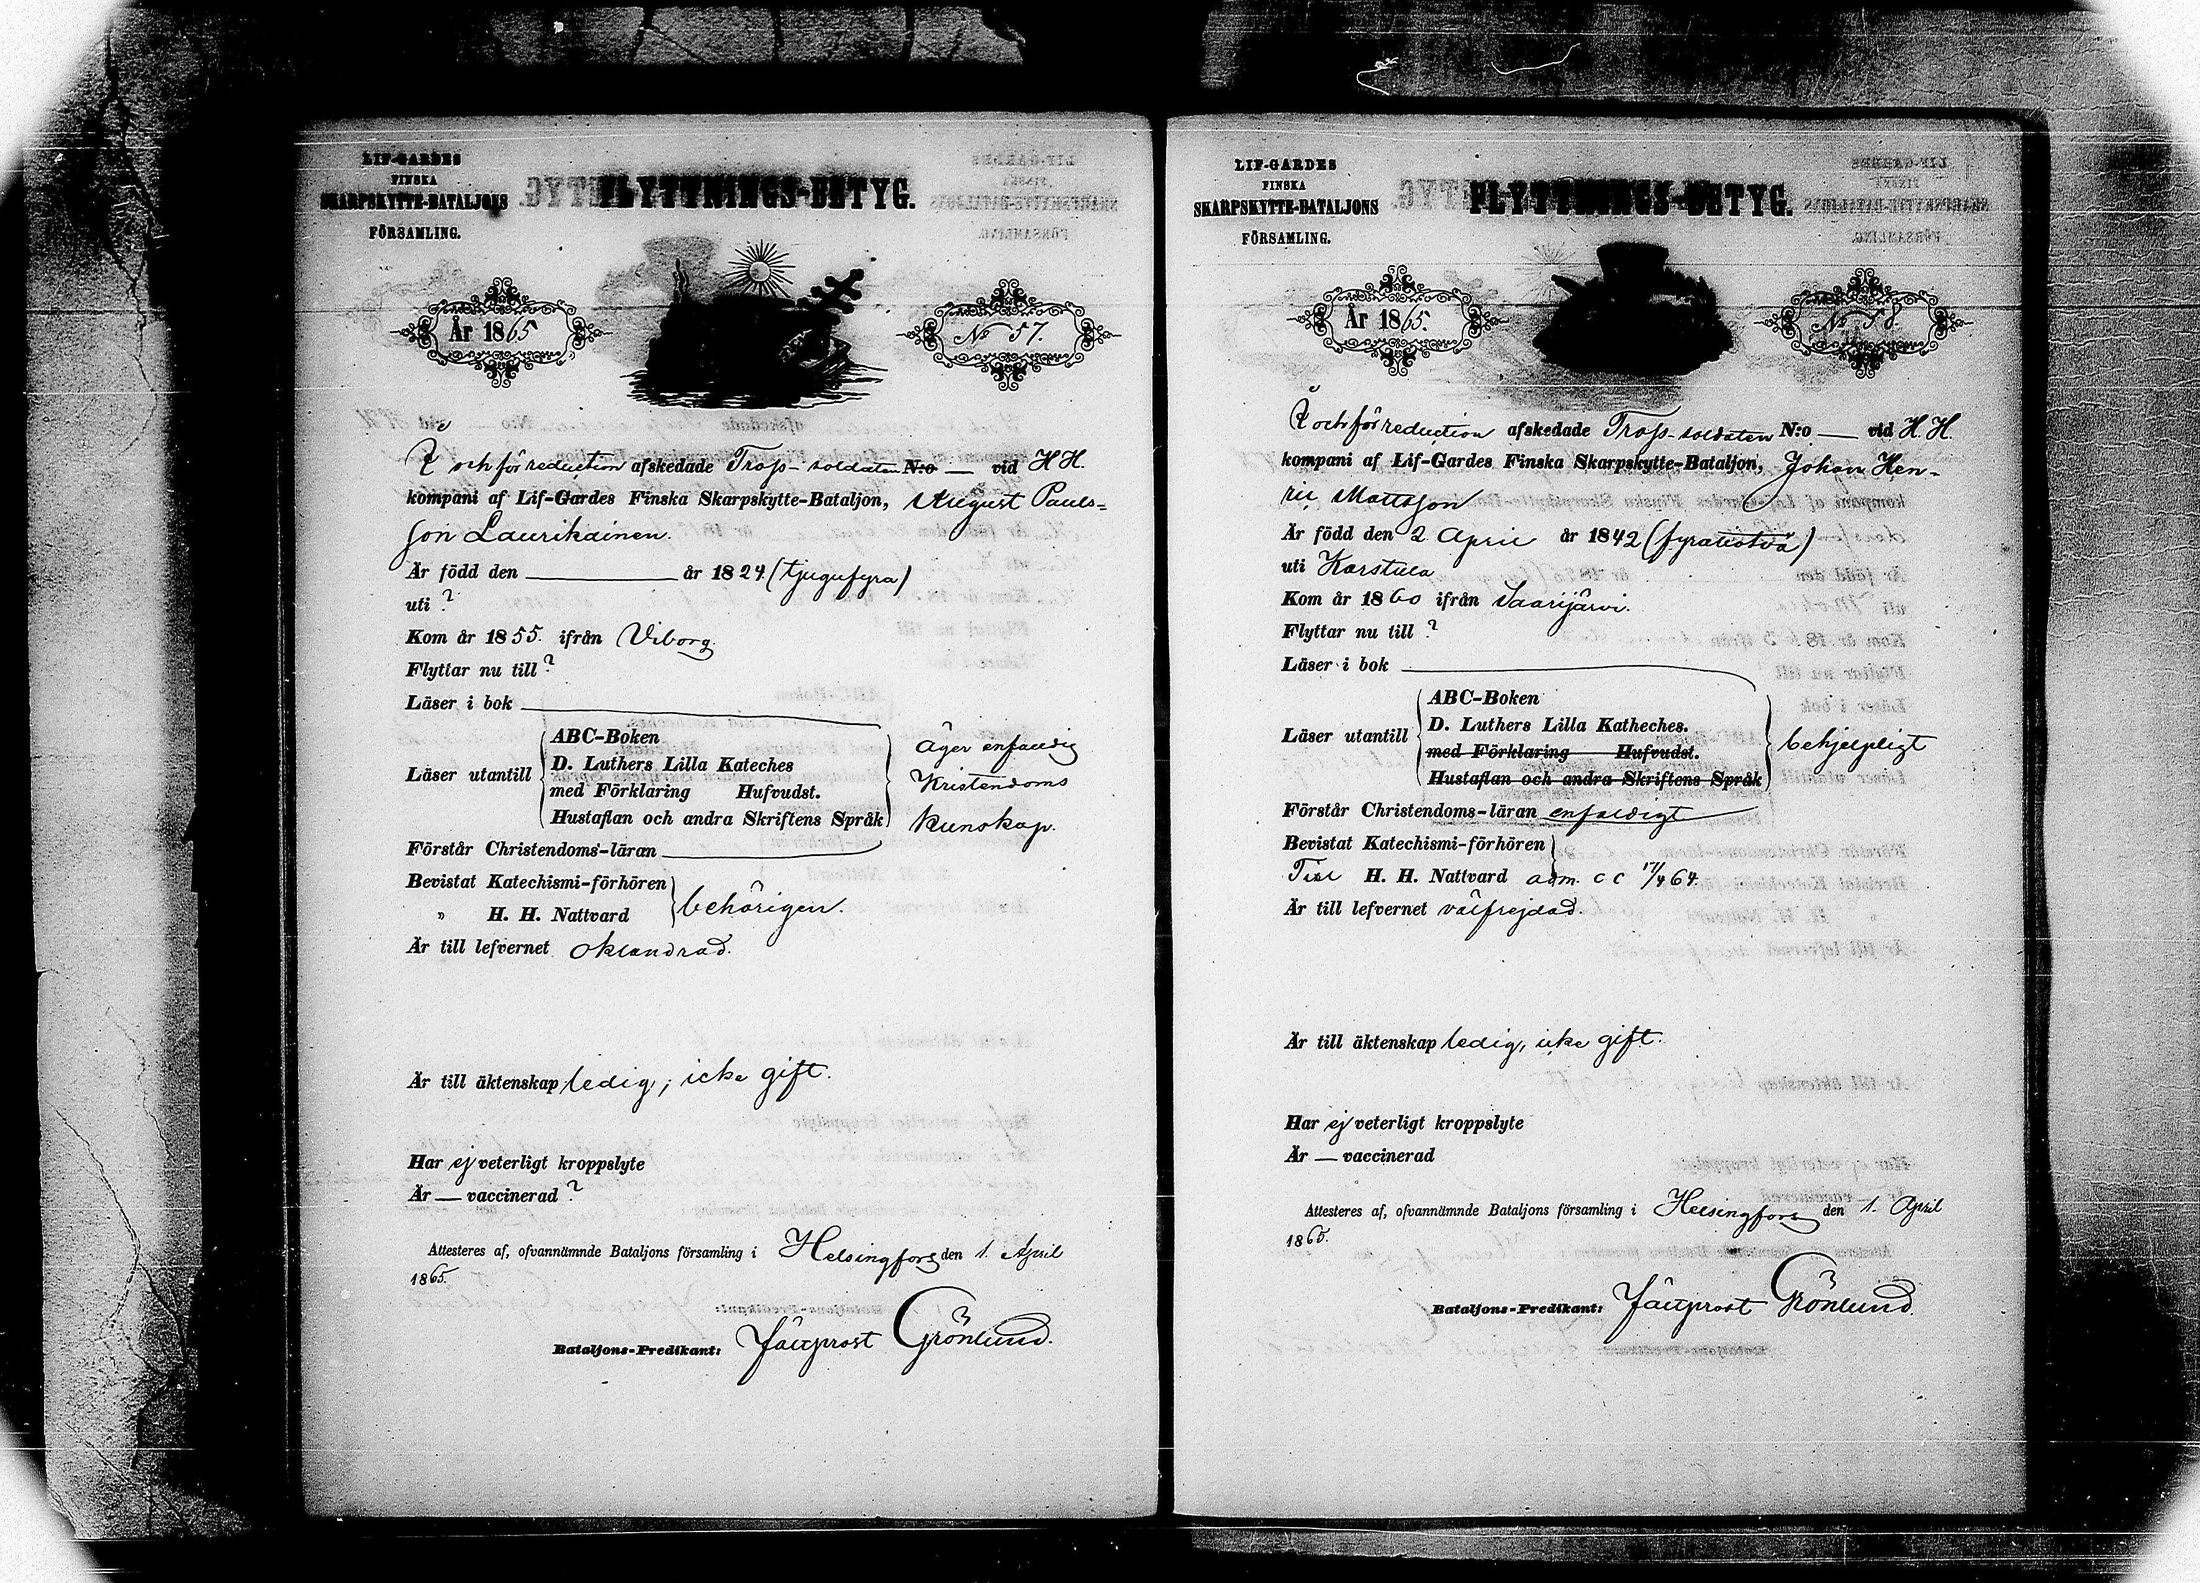 LIF-GARDES
FINSKA
SKARPSKYTTE-BATALJONS
FÖRSAMLING.
FLYTTNINGS-BETYG.
År 1865
No 57.
och för reduction afskedade Tross-soldaten N:o — vid H H.
kompani af Lif-Gardes Finska Skarpskytte-Bataljon, August Pauls=
son Laurikainen.
Är född den ——— år 1824 (tjugufyra)
uti ?
Kom år 1855. ifrån Viborg
Flyttar nu till ?
Läser i bok
Läser utantill
ABC-Boken
D. Luthers Lilla Kateches
med Förklaring Hufvudst.
Hustaflan och andra Skriftens Språk
äger enfaldig
Kristendoms
kunskap.
Förstår Christendoms-läran
Bevistat Katechismi-förhören
" H. H. Nattvard
behörigen.
Är till lefvernet oklandrad.
Är till äktenskap ledig, icke gift.
Har ej veterligt kroppslyte
Är — vaccinerad ?
Attesteres af, ofvannämnde Bataljons församling i Helsingfors den 1. April
1865.
Bataljons-Predikant: Fältprost Grönlund.
LIF-GARDES
FINSKA
SKARPSKYTTE-BATALJONS
FÖRSAMLING.
FLYTTNINGS-BETYG.
År 1865.
No 58.
och för reduction afskedade Tross-soldaten N:o — vid H. H.
kompani af Lif-Gardes Finska Skarpskytte-Bataljon, Johan Hen-
ric Mattsson
Är född den 2 April år 1842 (fyratiotvå)
uti Karstula
Kom år 1860 ifrån Saarijärvi.
Flyttar nu till ?
Läser i bok
Läser utantill
ABC-Boken
D. Luthers Lilla Katheches.
med Förklaring Hufvudst.
Hustaflan och andra Skriftens Språk
behjelpligt
Förstår Christendoms-läran enfaldigt
Bevistat Katechismi-förhören
Till H. H. Nattvard adm. c c 17/4 64.
Är till lefvernet välfrejdad.
Är till äktenskap ledig, icke gift.
Har ej veterligt kroppslyte
Är — vaccinerad
Attesteres af, ofvannämnde Bataljons församling i Helsingfors den 1. April
1865.
Bataljons-Predikant: Fältprost Grönlund.